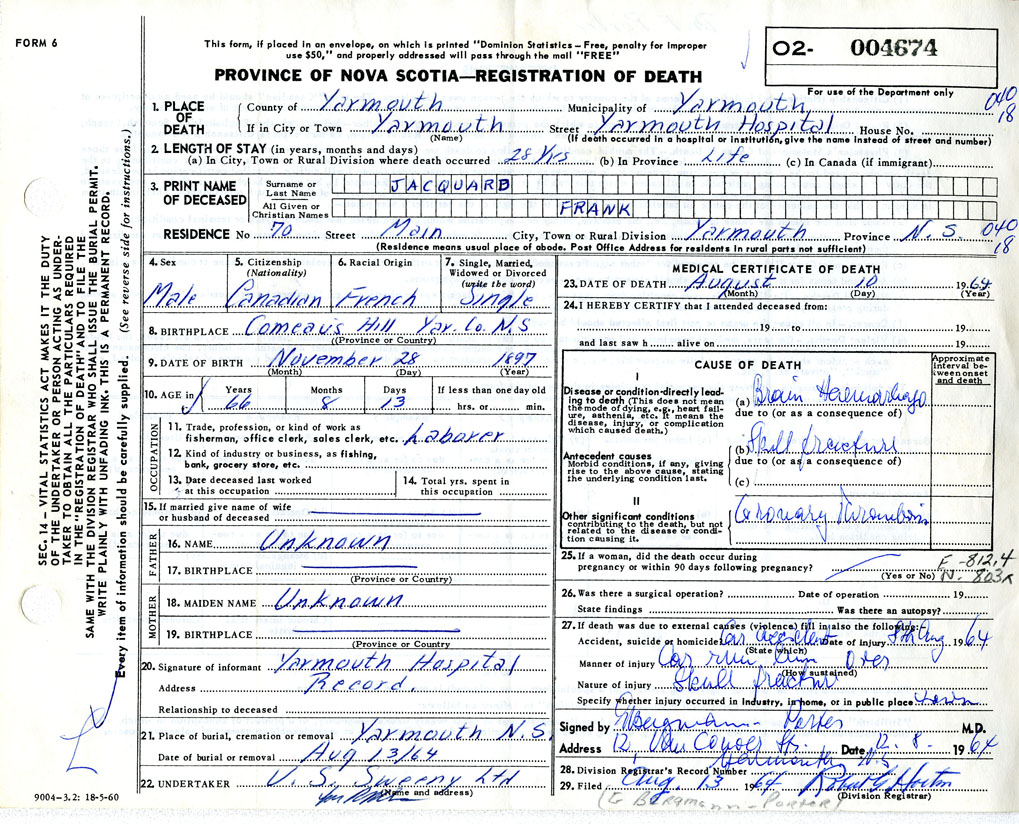 FORM 6
This form, if placed in an envelope, on which is printed "Dominion Statistics – Free, penalty for improper
use $50," and properly addressed will pass through the mail "FREE"
PROVINCE OF NOVA SCOTIA—REGISTRATION OF DEATH
02- 004674
For use of the Department only
040
18
1. PLACE OF DEATH
County of Yarmouth Municipality of Yarmouth
If in City or Town Yarmouth Street Yarmouth Hospital House No.
(Name) (If death occurred in a hospital or institution, give the name instead of street and number)
2. LENGTH OF STAY (in years, months and days)
(a) In City, Town or Rural Division where death occurred 28 Yrs (b) In Province Life (c) In Canada (if immigrant)
3. PRINT NAME OF DECEASED
Surname or Last Name JACQUARD
All Given or Christian Names FRANK
RESIDENCE No 70 Street Main City, Town or Rural Division Yarmouth Province N.S. 040
18
(Residence means usual place of abode. Post Office Address for residents in rural parts not sufficient)
4. Sex
Male
5. Citizenship
(Nationality)
Canadian
6. Racial Origin
French
7. Single, Married,
Widowed or Divorced
(write the word)
Single
8. BIRTHPLACE Comeau's Hill Yar. Co. N.S
(Province or Country)
9. DATE OF BIRTH November 28 1897
(Month) (Day) (Year)
10. AGE in
Years Months Days If less than one day old
66 8 13 hrs. or min.
OCCUPATION
11. Trade, profession, or kind of work as
fisherman, office clerk, sales clerk, etc. Laborer
12. Kind of industry or business, as fishing,
bank, grocery store, etc.
13. Date deceased last worked
at this occupation
14. Total yrs. spent in
this occupation
15. If married give name of wife
or husband of deceased
FATHER
16. NAME Unknown
17. BIRTHPLACE
(Province or Country)
MOTHER
18. MAIDEN NAME Unknown
19. BIRTHPLACE
(Province or Country)
20. Signature of informant Yarmouth Hospital
Address Record.
Relationship to deceased
21. Place of burial, cremation or removal Yarmouth N.S.
Date of burial or removal Aug 13/64
22. UNDERTAKER V. S. Sweeny Ltd
(Name and address)
MEDICAL CERTIFICATE OF DEATH
23. DATE OF DEATH August 10 1964
(Month) (Day) (Year)
24. I HEREBY CERTIFY that I attended deceased from:
19 to 19
and last saw h alive on 19
CAUSE OF DEATH
Approximate
interval be-
tween onset
and death
I
Disease or condition-directly lead-
ing to death (This does not mean
the mode of dying, e.g., heart fail-
ure, asthenia, etc. It means the
disease, injury, or complication
which caused death.)
(a) Brain Haemorrhage
due to (or as a consequence of)
Antecedent causes
Morbid conditions, if any, giving
rise to the above cause, stating
the underlying condition last.
(b) Skull fracture
due to (or as a consequence of)
(c)
II
Other significant conditions
contributing to the death, but not
related to the disease or condi-
tion causing it.
Coronary Thrombosis
25. If a woman, did the death occur during
pregnancy or within 90 days following pregnancy?
(Yes or No)
E-812.4
N. 803
26. Was there a surgical operation? Date of operation 19
State findings Was there an autopsy?
27. If death was due to external causes (violence) fill in also the following:
Accident, suicide or homicide Car accident Date of injury 8th Aug 1964
(State which)
Manner of injury Car run him over
(How sustained)
Nature of injury Skull fracture
Specify whether injury occurred in Industry, in home, or in public place
Signed by Bergmann-Porter M.D.
Address 12, Van Conver Str. Date 12.8. 1964
Yarmouth N.S.
28. Division Registrar's Record Number
29. Filed Aug. 13 1964 Robert G Horton
(Division Registrar)
(G Bergmann-Porter)
SEC. 14 – VITAL STATISTICS ACT MAKES IT THE DUTY
OF THE UNDERTAKER OR PERSON ACTING AS UNDER-
TAKER TO OBTAIN ALL THE PARTICULARS REQUIRED
IN THE "REGISTRATION OF DEATH" AND TO FILE THE
SAME WITH THE DIVISION REGISTRAR WHO SHALL ISSUE THE BURIAL PERMIT.
WRITE PLAINLY WITH UNFADING INK. THIS IS A PERMANENT RECORD.
Every item of information should be carefully supplied. (See reverse side for instructions.)
9004–3.2: 18-5-60